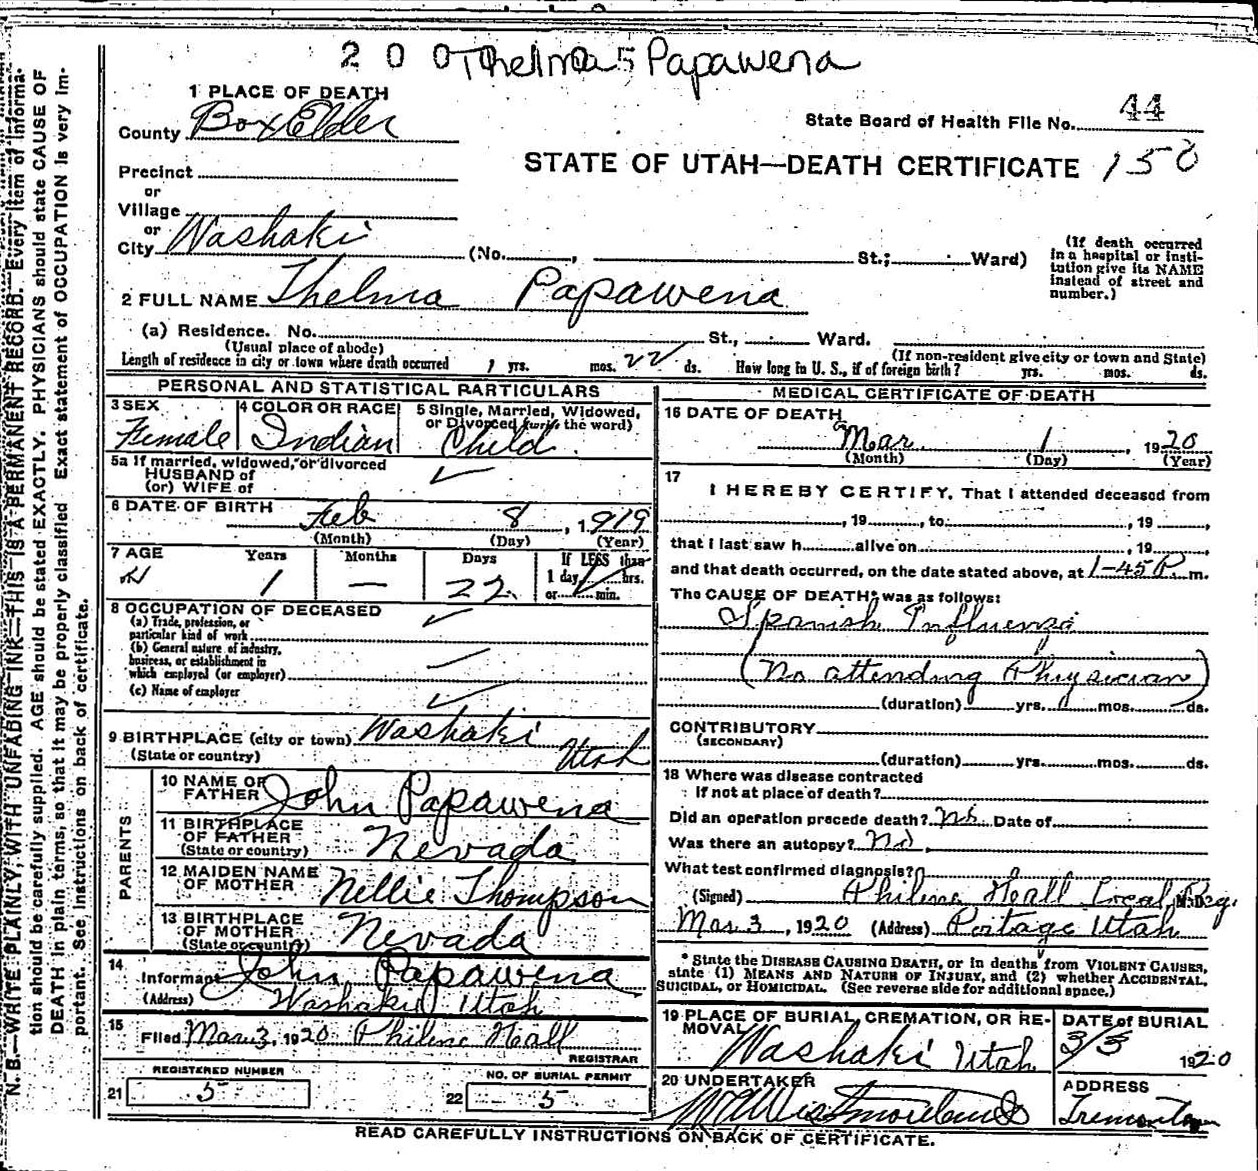 2 0 0 Thelma 5 Papawena
1 PLACE OF DEATH
County Box Elder
State Board of Health File No. 44
STATE OF UTAH—DEATH CERTIFICATE 150
Precinct
or
Village
or
City Washaki (No. , St.; Ward)
(If death occurred in a hospital or institution give its NAME instead of street and number.)
2 FULL NAME Thelma Papawena
(a) Residence. No. St., Ward.
(Usual place of abode) (If non-resident give city or town and State)
Length of residence in city or town where death occurred 1 yrs. mos. 22 ds. How long in U. S., if of foreign birth? yrs. mos. ds.
PERSONAL AND STATISTICAL PARTICULARS
3 SEX Female
4 COLOR OR RACE Indian
5 Single, Married, Widowed, or Divorced (write the word) Child
5a If married, widowed, or divorced
HUSBAND of
(or) WIFE of
6 DATE OF BIRTH Feb 8, 1919
(Month) (Day) (Year)
7 AGE Years Months Days If LESS than
1 — 22 1 day, hrs.
or min.
8 OCCUPATION OF DECEASED
(a) Trade, profession, or
particular kind of work
(b) General nature of industry,
business, or establishment in
which employed (or employer)
(c) Name of employer
9 BIRTHPLACE (city or town) Washaki
(State or country) Utah
PARENTS
10 NAME OF FATHER John Papawena
11 BIRTHPLACE OF FATHER (State or country) Nevada
12 MAIDEN NAME OF MOTHER Nellie Thompson
13 BIRTHPLACE OF MOTHER (State or country) Nevada
14 Informant John Papawena
(Address) Washaki Utah
15 Filed Mar 3, 1920 Philene Hall
REGISTRAR
REGISTERED NUMBER
21 5
NO. OF BURIAL PERMIT
22 5
MEDICAL CERTIFICATE OF DEATH
16 DATE OF DEATH
Mar 1, 1920
(Month) (Day) (Year)
17
I HEREBY CERTIFY, That I attended deceased from
, 19 , to , 19 ,
that I last saw h alive on , 19 ,
and that death occurred, on the date stated above, at 1-45 P. m.
The CAUSE OF DEATH* was as follows:
Spanish Influenza
(No attending Physician)
(duration) yrs. mos. ds.
CONTRIBUTORY
(SECONDARY)
(duration) yrs. mos. ds.
18 Where was disease contracted
If not at place of death?
Did an operation precede death? No Date of
Was there an autopsy? No
What test confirmed diagnosis?
(Signed) Philene Hall Local Reg. M. D.
Mar 3, 1920 (Address) Portage Utah
* State the DISEASE CAUSING DEATH, or in deaths from VIOLENT CAUSES,
state (1) MEANS AND NATURE OF INJURY, and (2) whether ACCIDENTAL,
SUICIDAL, or HOMICIDAL. (See reverse side for additional space.)
19 PLACE OF BURIAL, CREMATION, OR REMOVAL
Washaki Utah
DATE of BURIAL
3/3 1920
20 UNDERTAKER
ADDRESS
Tremonton
READ CAREFULLY INSTRUCTIONS ON BACK OF CERTIFICATE.
N. B.—WRITE PLAINLY, WITH UNFADING INK—THIS IS A PERMANENT RECORD. Every item of informa-
tion should be carefully supplied. AGE should be stated EXACTLY. PHYSICIANS should state CAUSE OF
DEATH in plain terms, so that it may be properly classified. Exact statement of OCCUPATION is very im-
portant. See instructions on back of certificate.